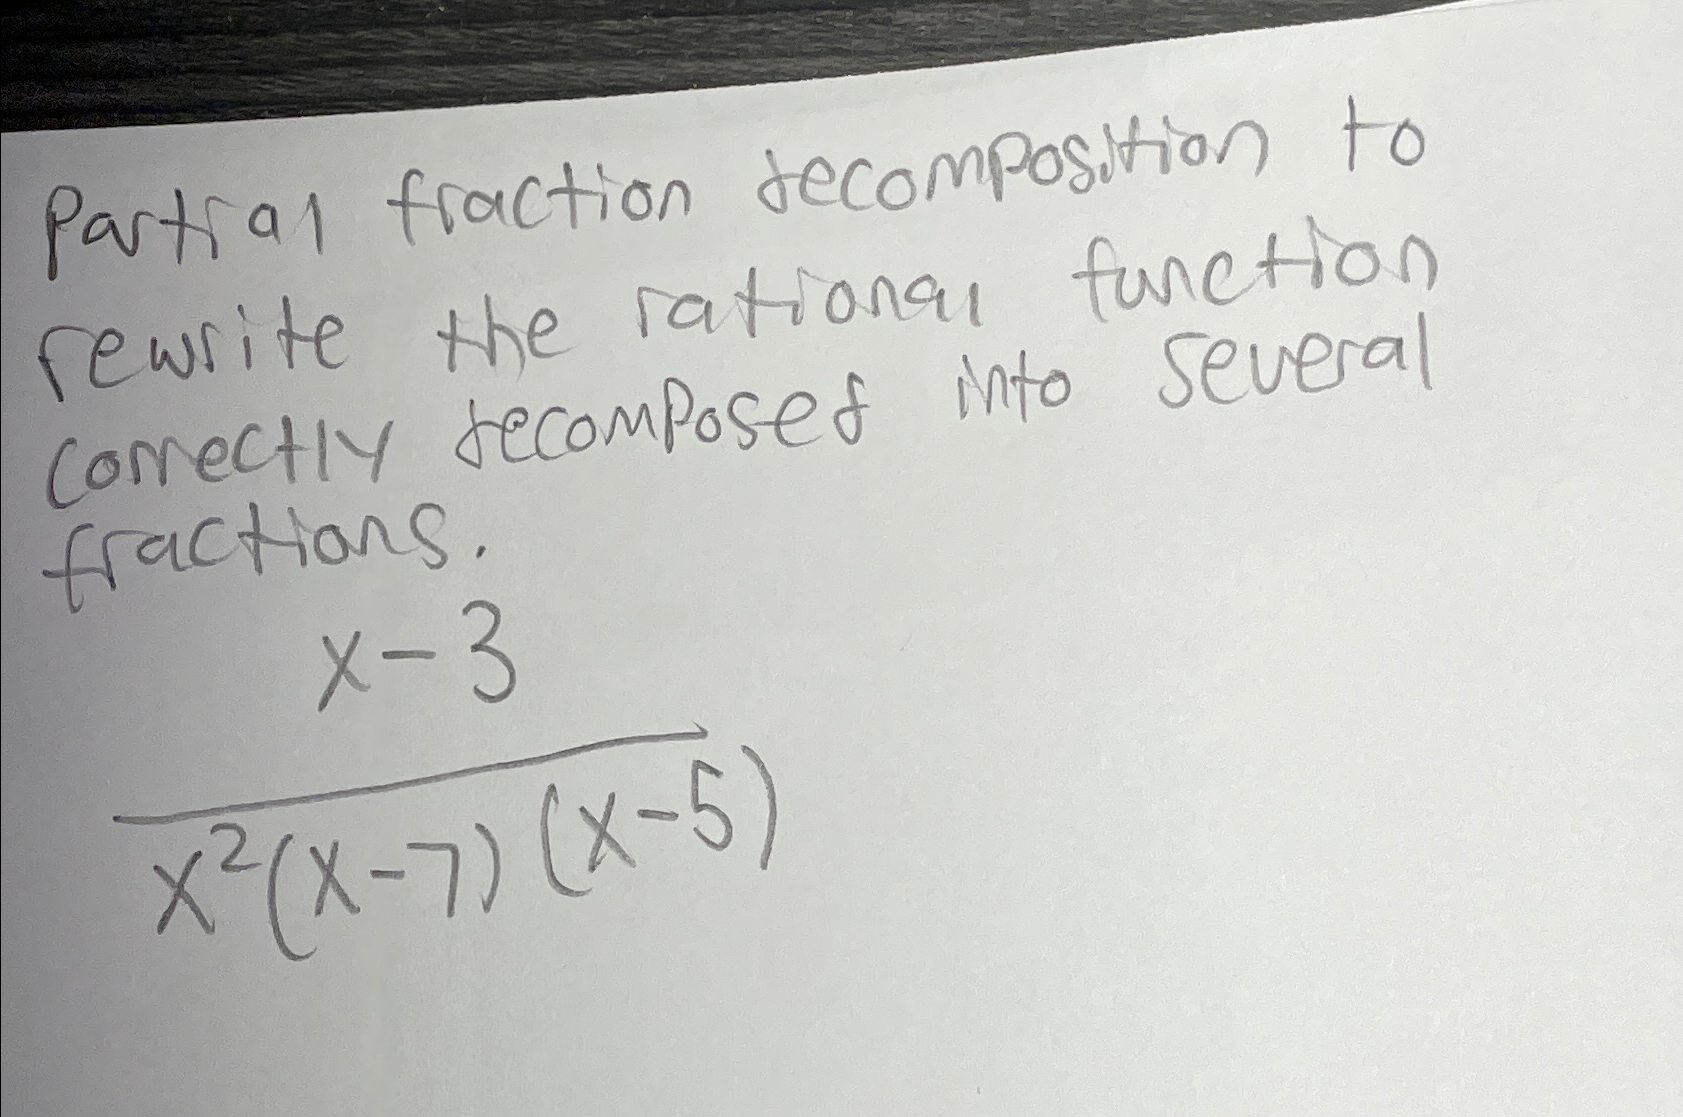 Partial fraction decomposition to
rewrite the rational function
correctly decomposed into several
fractions.
x-3
x²(x-7)(x-5)